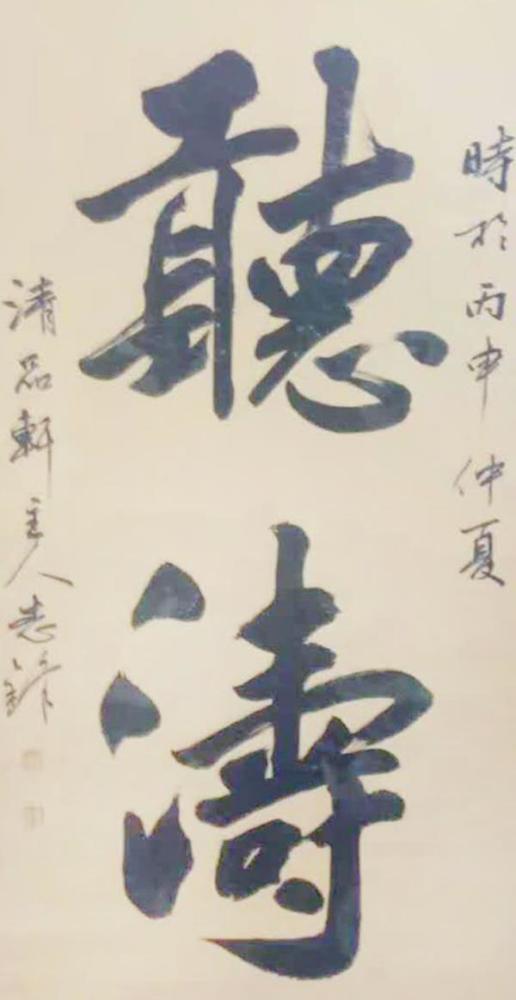 時於丙申仲夏
聽濤
清品軒主人志鋒